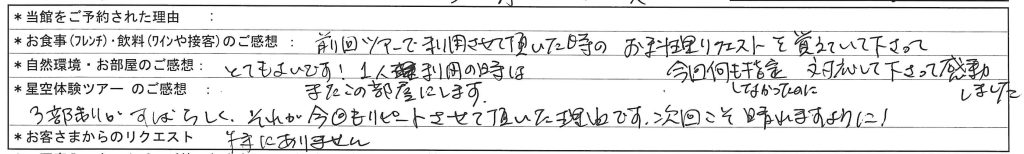 *当館をご予約された理由　：
*お食事(フレンチ)・飲料(ワインや接客)のご感想：前回ツアーで利用させて頂いた時のお料理リクエストを覚えていて下さって
*自然環境・お部屋のご感想：とてもよいです！1人利用の時は　今回何も指定　対応して下さって感動
*星空体験ツアー のご感想　：またこの部屋にします。　しなかったのに　しました
3部ありがすばらしく、それが今回もリピートさせて頂いた理由です。次回こそ晴れますように！
*お客さまからのリクエスト　特にありません